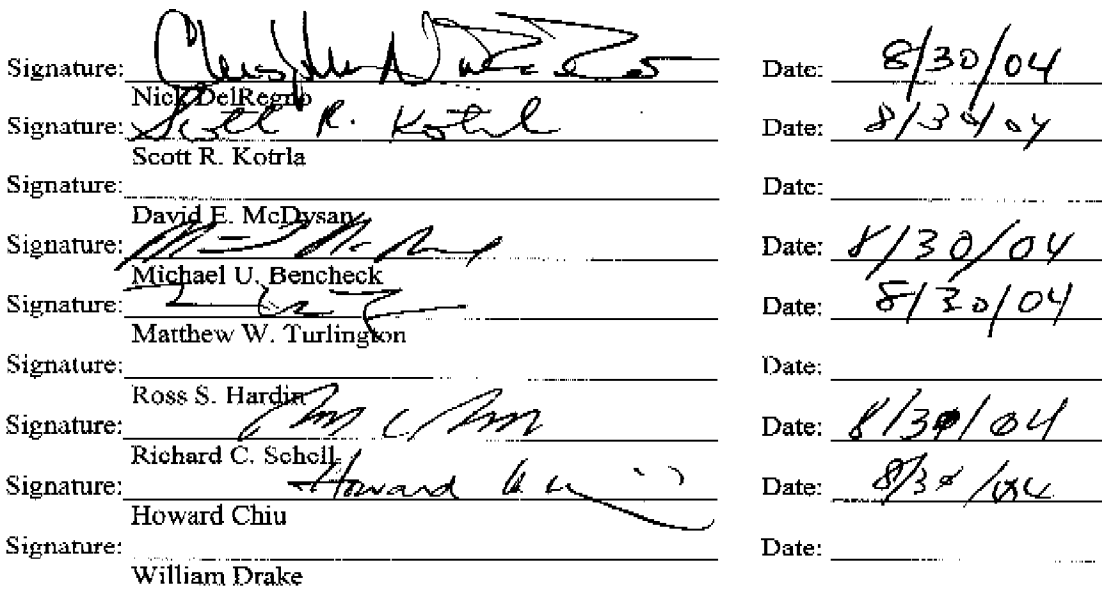 Signature: Date: 8/30/04
Nick DelRegno
Signature: Scott R. Kotrla Date: 8/30/04
Scott R. Kotrla
Signature: Date:
David E. McDysan
Signature: Date: 8/30/04
Michael U. Bencheck
Signature: Date: 8/30/04
Matthew W. Turlington
Signature: Date:
Ross S. Hardin
Signature: Date: 8/30/04
Richard C. Schell
Signature: Howard Date: 8/30/04
Howard Chiu
Signature: Date:
William Drake